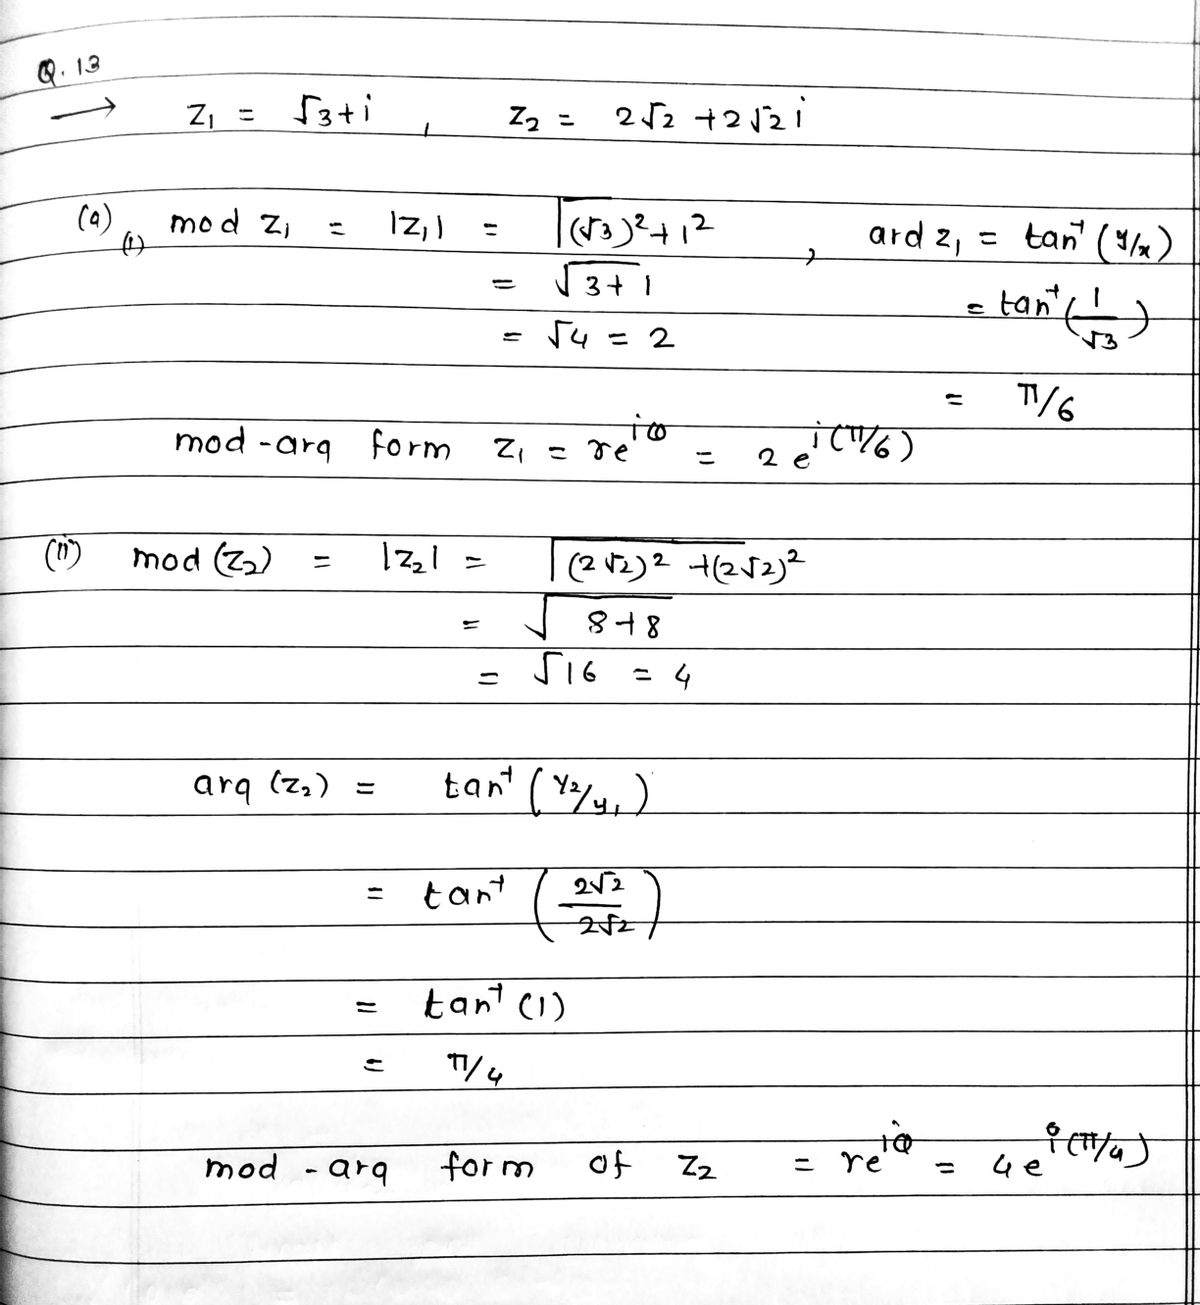 Q. 13
→ z₁ = √3+i , z₂ = 2√2 +2√2 i
(a) (i) mod z₁ = |z₁| = √(√3)²+1² , ard z₁ = tan⁻¹ (y/x)
= √3+1 = tan⁻¹ (1/√3)
= √4 = 2
= π/6
mod-arg form z₁ = re^iθ = 2 e^i(π/6)
(ii) mod (z₂) = |z₂| = √(2√2)² +(2√2)²
= √8+8
= √16 = 4
arg (z₂) = tan⁻¹ (y₂/y₁)
= tan⁻¹ (2√2/2√2)
= tan⁻¹ (1)
= π/4
mod - arg form of z₂ = re^iθ = 4e^i(π/4)